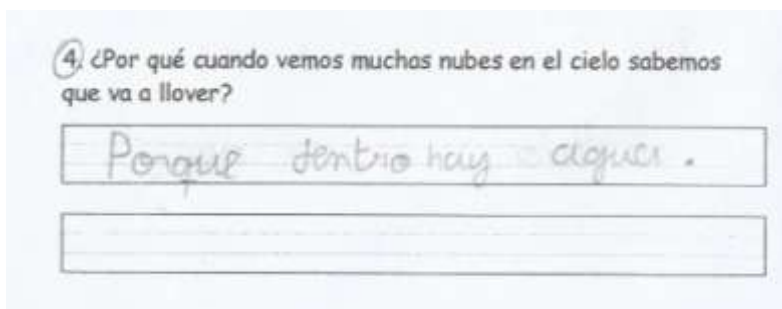 4. ¿Por qué cuando vemos muchas nubes en el cielo sabemos
que va a llover?
Porque dentro hay agua.